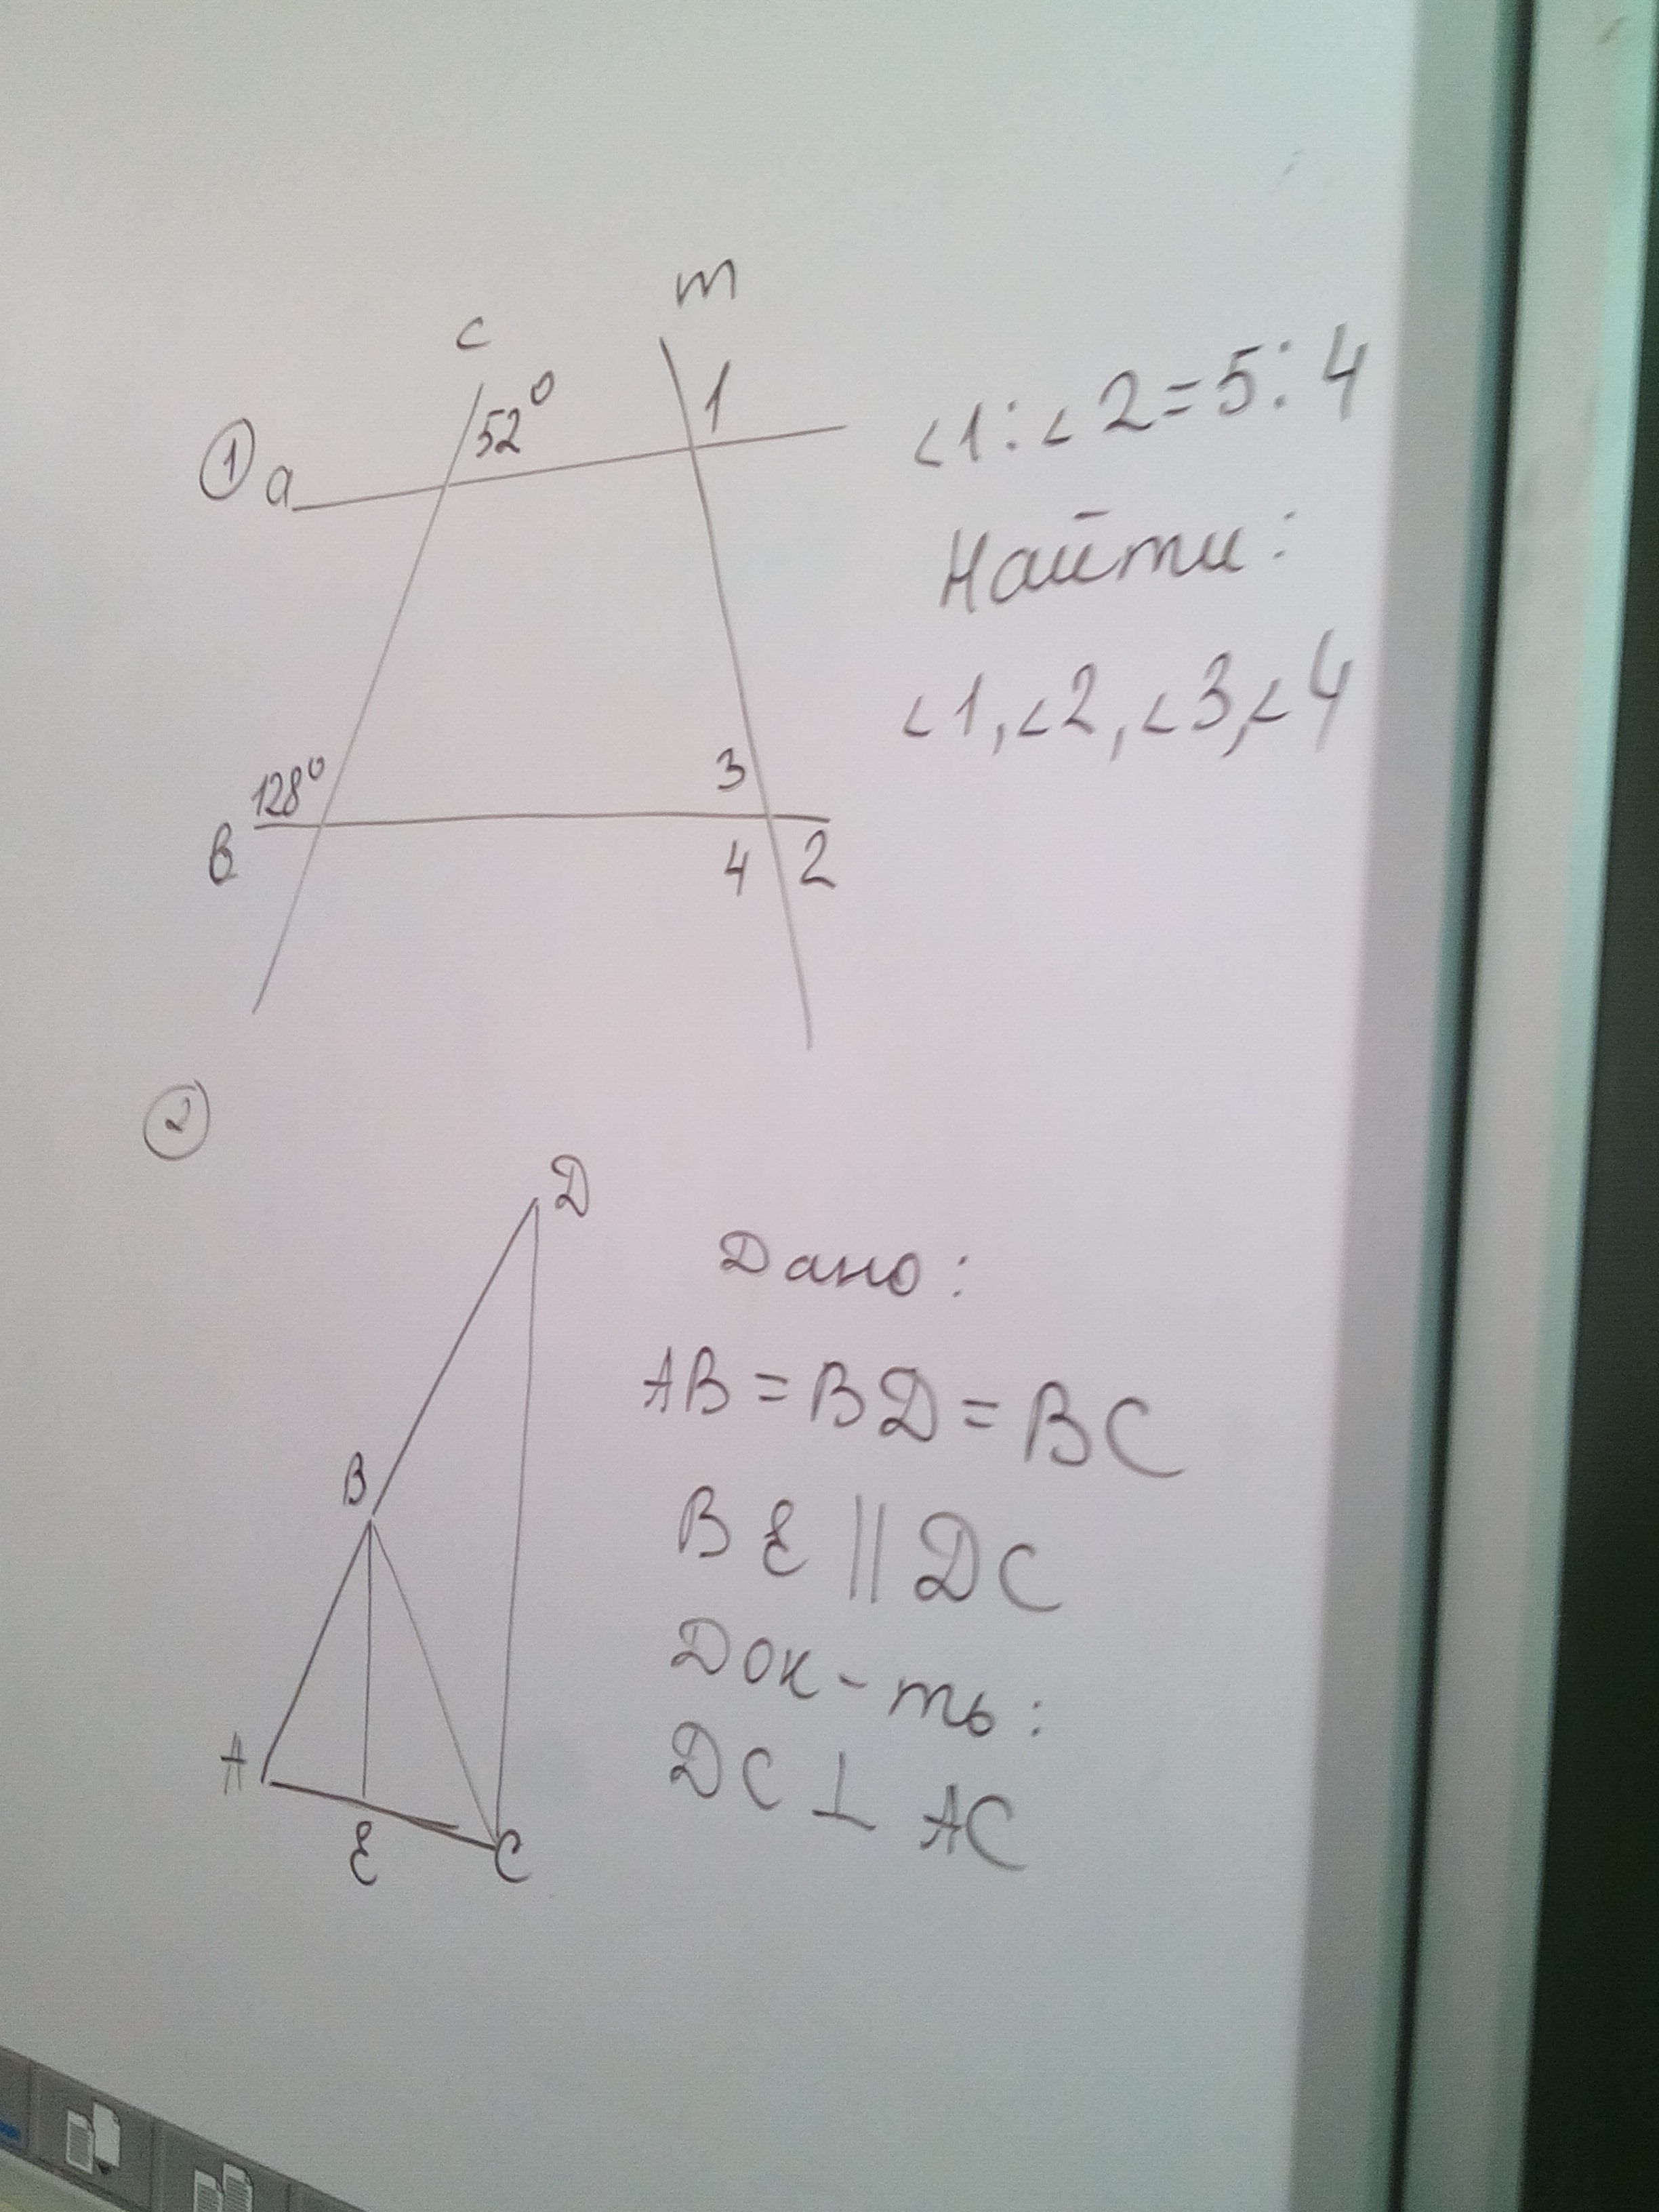 m
c
52°
1
① a
∠1:∠2=5:4
Найти:
∠1,∠2,∠3,∠4
128°
3
в
4 2
②
D
Дано:
AB=BD=BC
B
BE||DC
Док-ть:
A
DC⊥AC
E
C